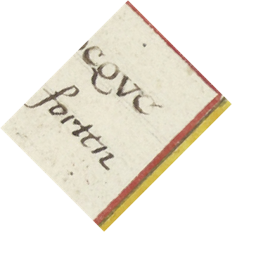 cQVC
forten